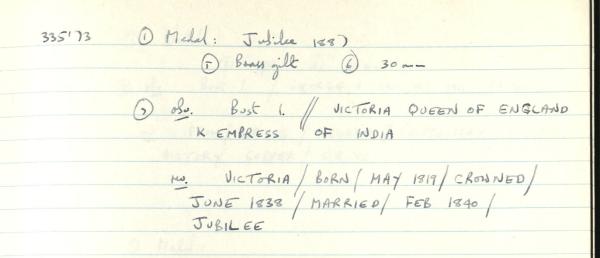 335'73 ① Medal: Jubilee 1887
⑤ Brass gilt ⑥ 30mm
⑦ obv. Bust l. // VICTORIA QUEEN OF ENGLAND
& EMPRESS OF INDIA
rev. VICTORIA / BORN / MAY 1819 / CROWNED /
JUNE 1838 / MARRIED / FEB 1840 /
JUBILEE